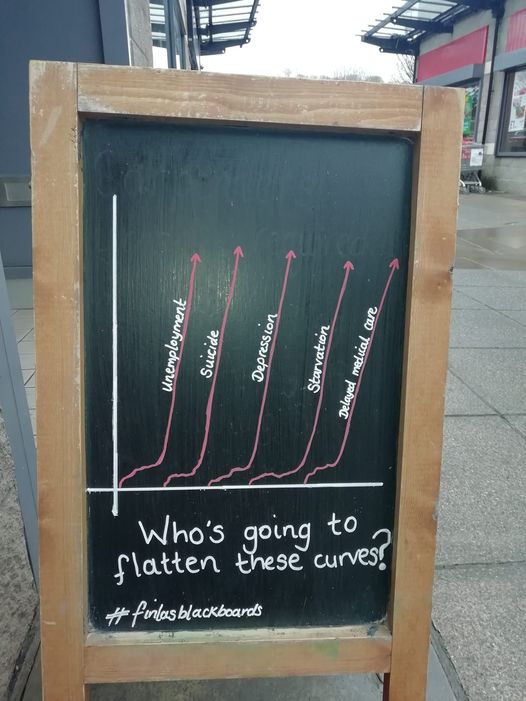 Unemployment
Suicide
Depression
Starvation
Delayed medical care
Who's going to
flatten these curves?
#finlasblackboards